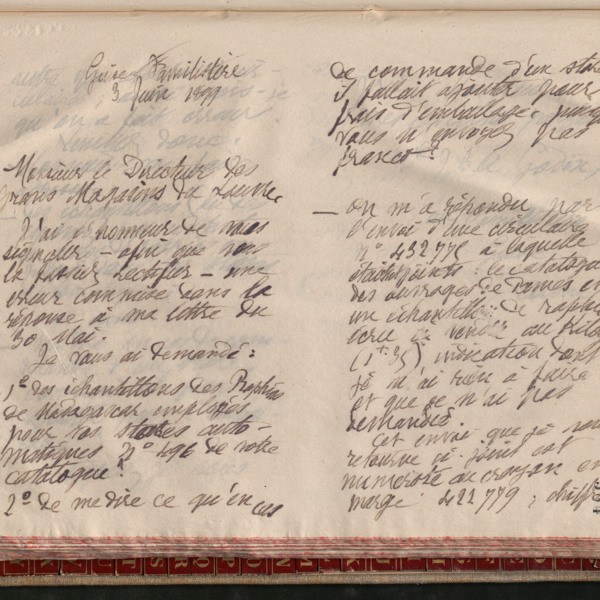 Guise Familistère
3 Juin 1899
Monsieur le Directeur des
Grans Magasins du Louvre
J'ai l'honneur de vous
signaler – afin que vous
la fassiez rectifier – une
erreur commise dans la
réponse à ma lettre du
30 Mai.
Je vous ai demandé :
1º des échantillons des Raphias
de Madagascar employés
pour vos stores auto-
matiques Nº 496 de votre
catalogue.
2º de me dire ce qu'en cas
de commande d'un store
il fallait ajouter pour
frais d'emballage, puisque
vous n'envoyez pas
franco.
— on m'a répondu par
l'envoi d'une circulaire
nº 432775 à laquelle
étaient joints : le catalogue
des ouvrages de Dames et
un échantillon de raphia
écru à
indication dont
je n'ai rien à faire
et que je n'ai pas
demandée.
Cet envoi que je vous
retourne ci joint est
numéroté au crayon en
marge : 422779 ; chiffre